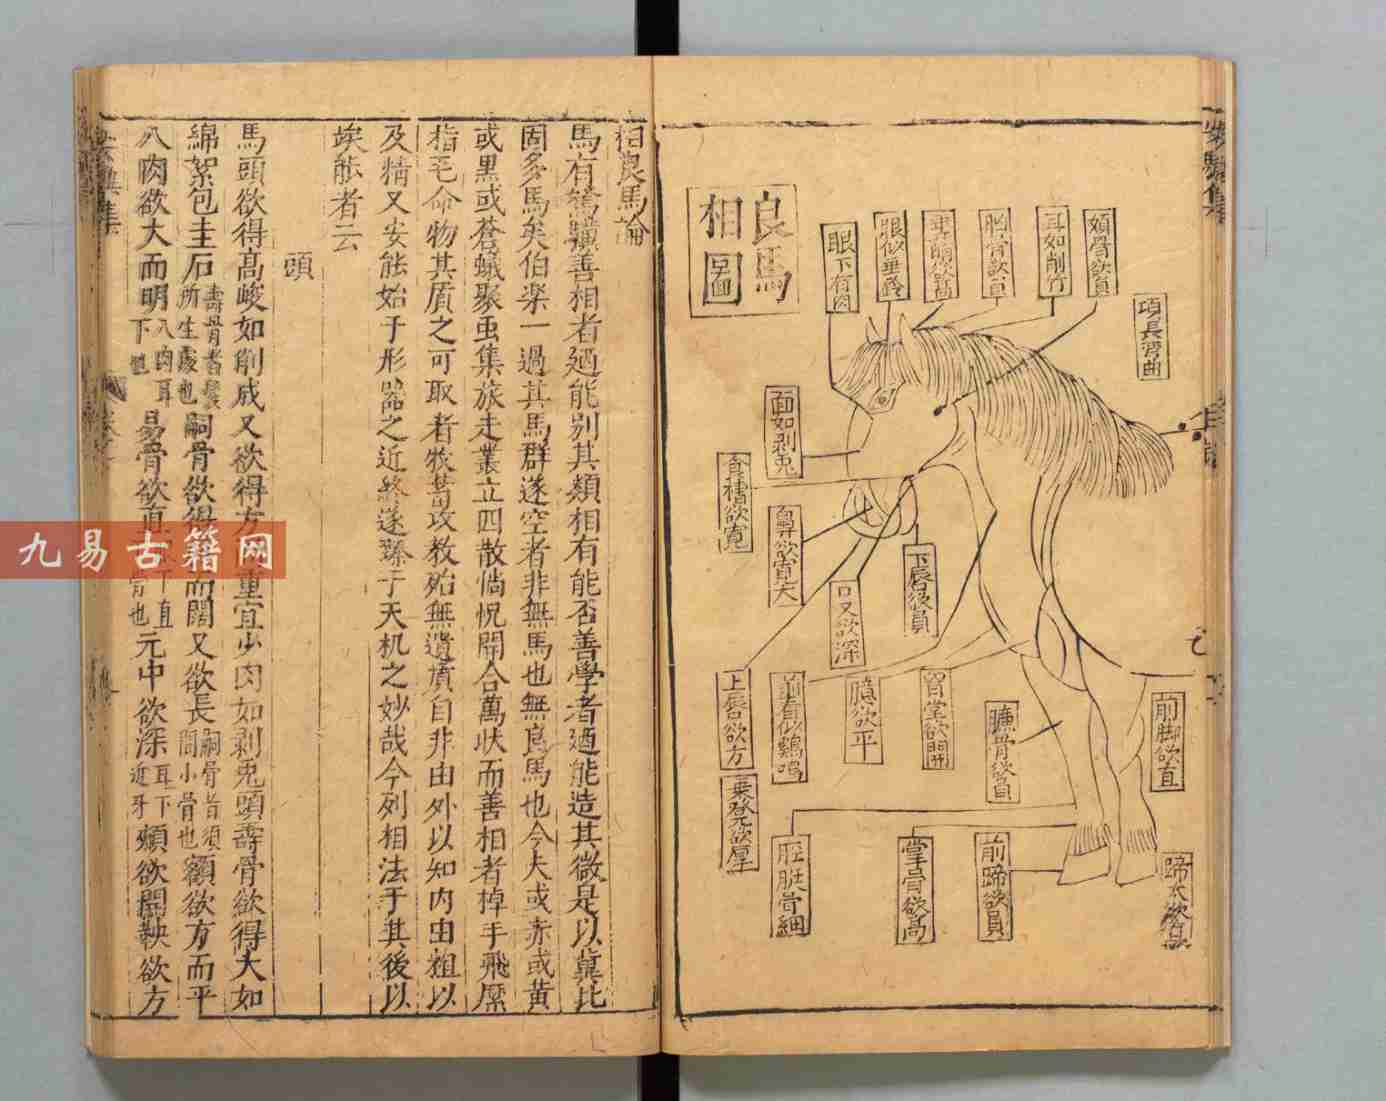 良馬
相圖
頰骨欲員
耳如削竹
腦骨欲員
眼似垂鈴
眼下有肉
項長彎曲
面如剥兎
食槽欲寬
鼻欲寬大
下唇欲員
口又欲深
上唇欲方
乗登欲厚
前看似鷄鳴
臆欲平
胷堂欲開
臁骨欲員
前脚欲直
胫骨細
掌骨欲高
前蹄欲員
相良馬論
馬有駑驥善相者廼能别其類相有能否善學者廼能造其微是以冀北
固多馬矣伯楽一過其馬群遂空者非無馬也無良馬也今夫或赤或黄
或黒或蒼蟻聚虫集旅走叢立四散倘怳開合萬状而善相者掉手飛縻
指毛命物其質之可取者牧其攻教殆無遺擯自非由外以知内由粗以
及精又安能始于形器之近終遂臻于天机之妙哉今列相法于其後以
埃能者云
頭
馬頭欲得高峻如削成又欲得方重宜少肉如剥兎頭壽骨欲得大如
綿絮包圭石壽骨者髮所生處也嗣骨欲得而闊又欲長嗣骨者須間小骨也額欲方而平
八肉欲大而明八肉耳下也易骨欲直直骨也元中欲深耳下近牙頰欲開鞅欲方
九易古籍网